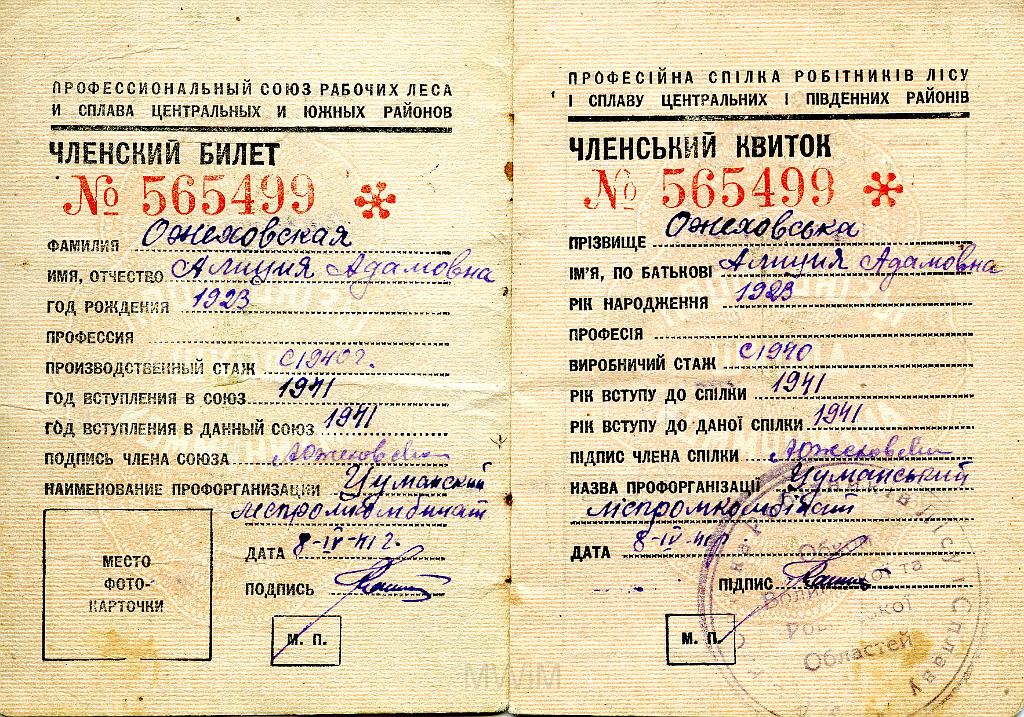 ПРОФЕССИОНАЛЬНЫЙ СОЮЗ РАБОЧИХ ЛЕСА
И СПЛАВА ЦЕНТРАЛЬНЫХ И ЮЖНЫХ РАЙОНОВ
ЧЛЕНСКИЙ БИЛЕТ
№ 565499 *
ФАМИЛИЯ Ожеховская
ИМЯ, ОТЧЕСТВО Алиция Адамовна
ГОД РОЖДЕНИЯ 1923
ПРОФЕССИЯ
ПРОИЗВОДСТВЕННЫЙ СТАЖ с 1940 г.
ГОД ВСТУПЛЕНИЯ В СОЮЗ 1941
ГОД ВСТУПЛЕНИЯ В ДАННЫЙ СОЮЗ 1941
ПОДПИСЬ ЧЛЕНА СОЮЗА
НАИМЕНОВАНИЕ ПРОФОРГАНИЗАЦИИ Цуманский
леспромкомбинат
МЕСТО
ФОТО-
КАРТОЧКИ
ДАТА 8-IV-41 г.
ПОДПИСЬ
М. П.
ПРОФЕСІЙНА СПІЛКА РОБІТНИКІВ ЛІСУ
І СПЛАВУ ЦЕНТРАЛЬНИХ І ПІВДЕННИХ РАЙОНІВ
ЧЛЕНСЬКИЙ КВИТОК
№ 565499 *
ПРІЗВИЩЕ Ожеховська
ІМ'Я, ПО БАТЬКОВІ Алиция Адамовна
РІК НАРОДЖЕННЯ 1923
ПРОФЕСІЯ
ВИРОБНИЧИЙ СТАЖ с 1940
РІК ВСТУПУ ДО СПІЛКИ 1941
РІК ВСТУПУ ДО ДАНОЇ СПІЛКИ 1941
ПІДПИС ЧЛЕНА СПІЛКИ
НАЗВА ПРОФОРГАНІЗАЦІЇ Цуманський
ліспромкомбінат
ДАТА 8-IV-41
ПІДПИС
М. П.
Лісу і Сплаву
та
Областей
MWiM